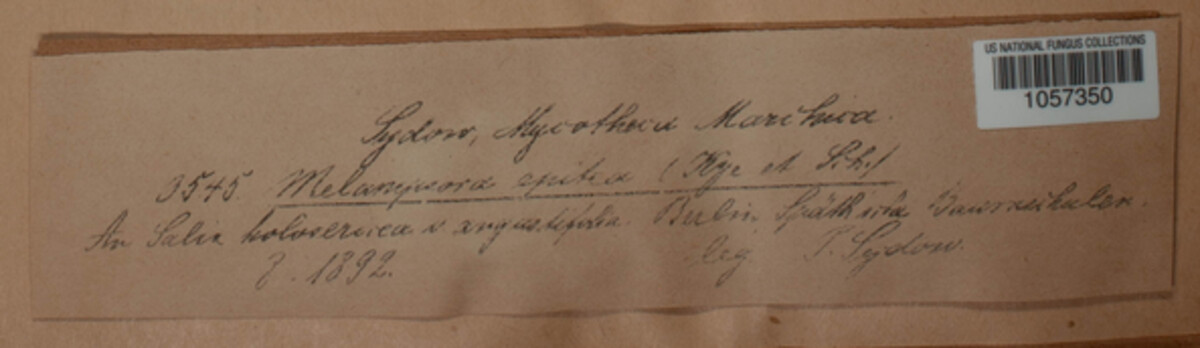 US NATIONAL FUNGUS COLLECTIONS
1057350
Sydow, Mycotheca Marchica.
3545. Melampsora epitea (Kze et Sch.)
An Salix holosericea v angustifolia. Berlin, Späth'sche Baumschulen.
8. 1892. leg P. Sydow.